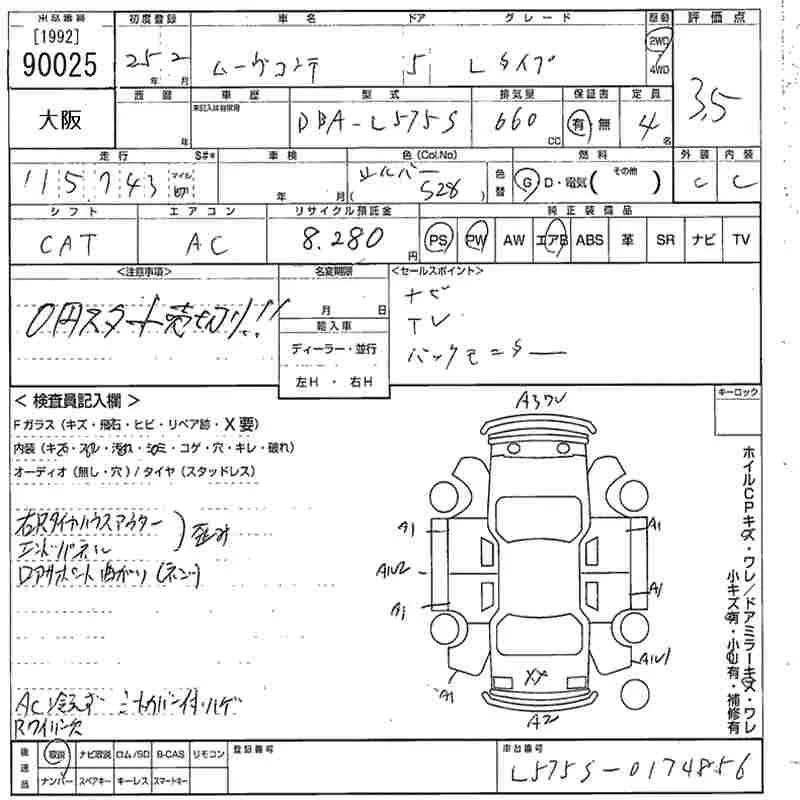 車両番号
[1992]
90025
大阪
初度登録 車名 ドア グレード 駆動 評価点
25年 2月 ムーヴコンテ 5 Lタイプ 2WD 4WD 3.5
西暦 車歴 型式 排気量 保証書 定員
年 未記入は自家用 DBA-L575S 660 CC 有・無 4名
走行 S#* 車検 色(Col.No) 燃料 外装 内装
115743 マイル 年 月 シルバー ( S28 ) 色替 G・D・電気( その他 ) C C
シフト エアコン リサイクル預託金 純正装備品
CAT AC 8.280円 PS PW AW エアB ABS 革 SR ナビ TV
<注意事項> 名変期限 <セールスポイント>
0円スタート売切り!!
月 日
輸入車
ディーラー・並行
左H ・ 右H
ナビ
TV
バックモニター
キーロック
< 検査員記入欄 >
Fガラス (キズ・飛石・ヒビ・リペア跡・X要)
内装 (キズ・スレ・汚れ・シミ・コゲ・穴・キレ・破れ)
オーディオ (無し・穴) / タイヤ (スタッドレス)
右Rタイヤハウスアウター
エンドパネル
) 歪み
ロアサポート曲がり (ネジ)
AC冷えず
Rワイパー欠
A3 ワレ
A1 A1
AU2
A1 A1
A1 AU1
XX
A2
ホイルCPキズ・ワレ/ドアミラーキズ・ワレ
小キズ有・小凹有・補修有
後送品 取説 ナビ取説 ロム/SD B-CAS リモコン
ナンバー スペアキー キーレス スマートキー
登録番号
車台番号
L575S-0174856